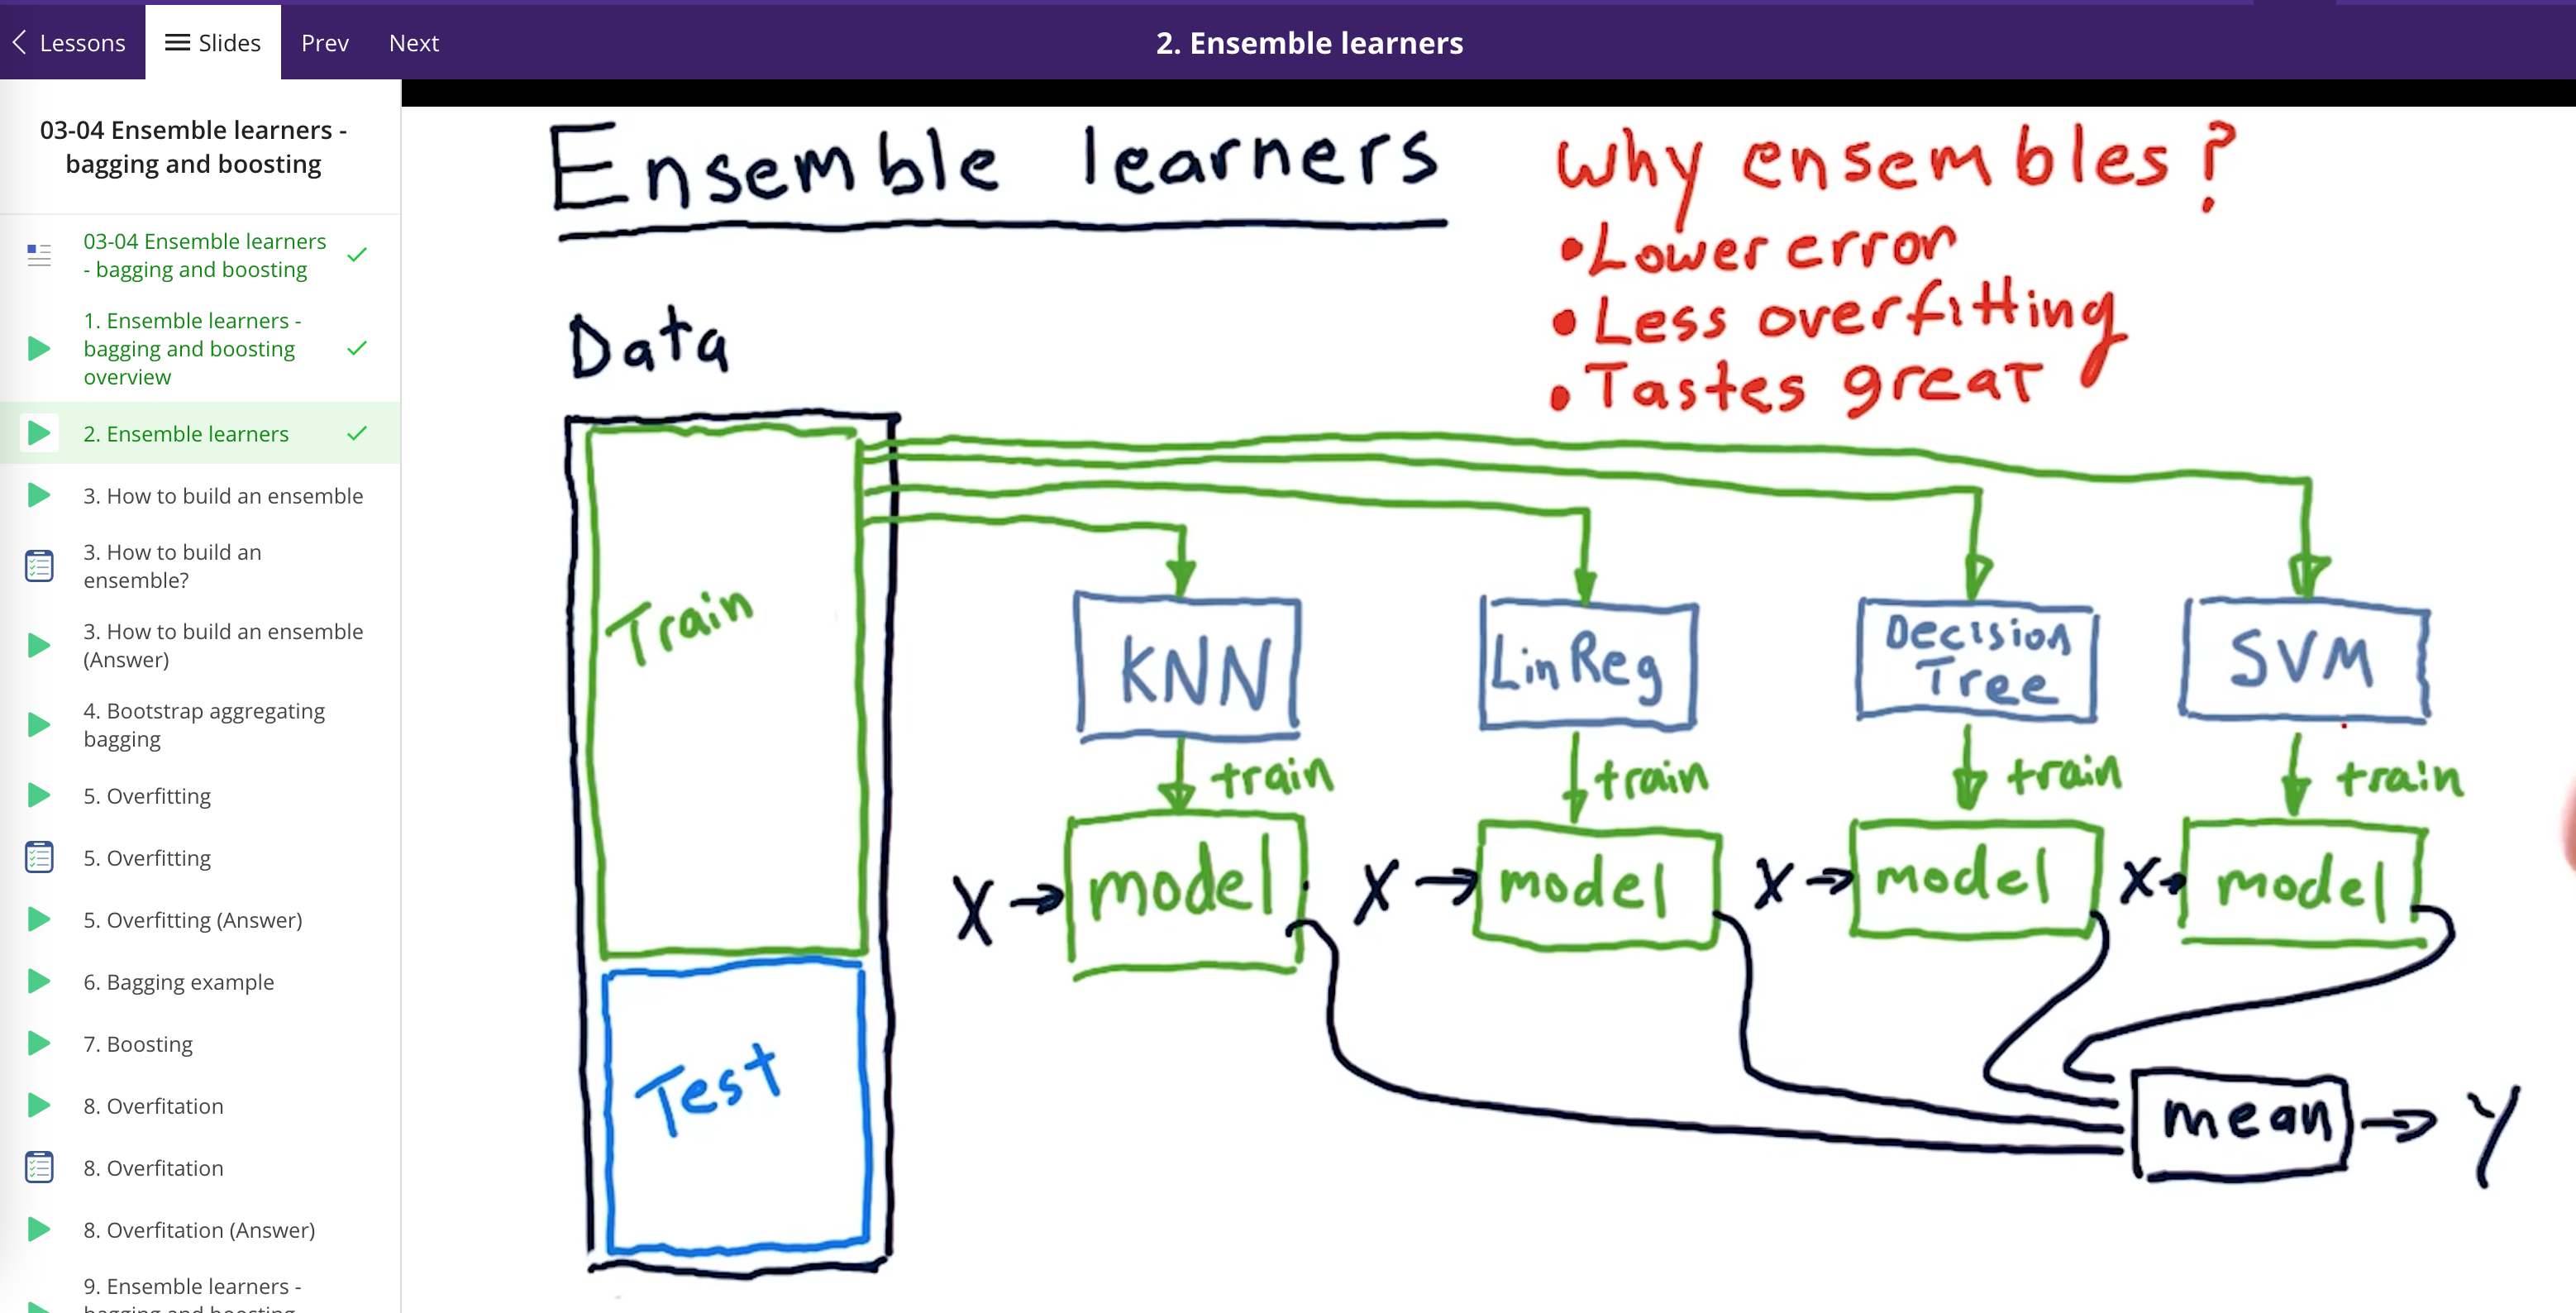 Lessons
Slides
Prev
Next
2. Ensemble learners
03-04 Ensemble learners -
bagging and boosting
03-04 Ensemble learners
- bagging and boosting
1. Ensemble learners -
bagging and boosting
overview
2. Ensemble learners
3. How to build an ensemble
3. How to build an
ensemble?
3. How to build an ensemble
(Answer)
4. Bootstrap aggregating
bagging
5. Overfitting
5. Overfitting
5. Overfitting (Answer)
6. Bagging example
7. Boosting
8. Overfitation
8. Overfitation
8. Overfitation (Answer)
9. Ensemble learners -
bagging and boosting
Ensemble learners
Why ensembles?
• Lower error
• Less overfitting
• Tastes great
Data
Train
Test
KNN
LinReg
Decision
Tree
SVM
train
train
train
train
X → model
X → model
X → model
X → model
mean → Y